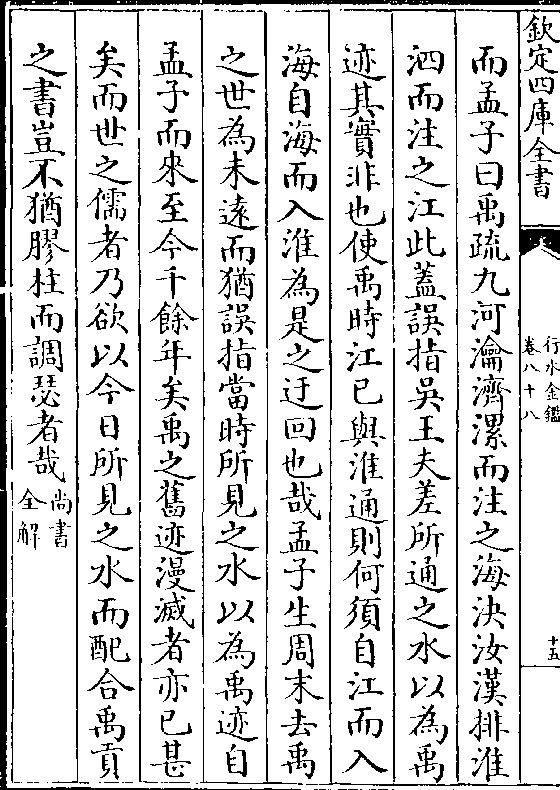 欽定四庫全書
行水金鑑
卷八十八
十五
而孟子曰禹疏九河瀹濟漯而注之海決汝漢排淮
泗而注之江此蓋誤指吳王夫差所通之水以為禹
迹其實非也使禹時江已與淮通則何須自江而入
海自海而入淮為是之迂回也哉孟子生周末去禹
之世為未遠而猶誤指當時所見之水以為禹迹自
孟子而來至今千餘年矣禹之舊迹漫滅者亦已甚
矣而世之儒者乃欲以今日所見之水而配合禹貢
之書豈不猶膠柱而調瑟者哉尚書全解